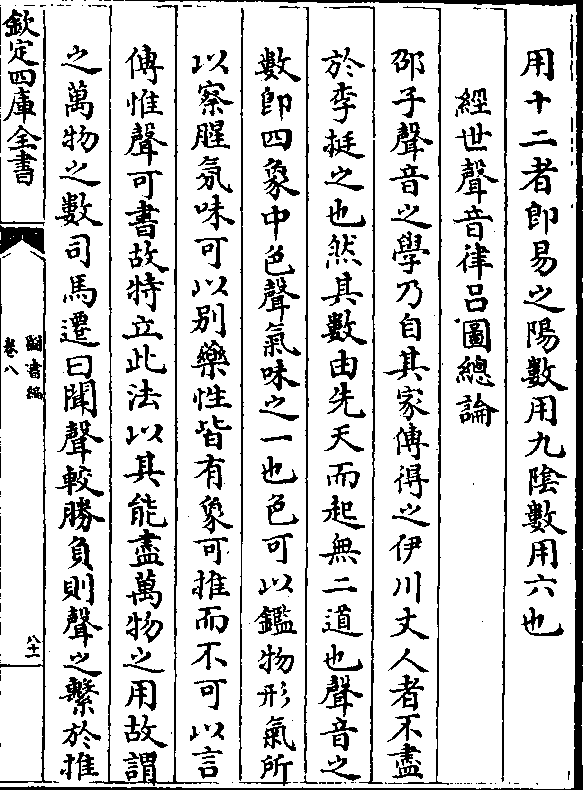 用十二者即易之陽數用九陰數用六也
經世聲音律呂圖總論
邵子聲音之學乃自其家傳得之伊川丈人者不盡
於李挺之也然其數由先天而起無二道也聲音之
數即四象中色聲氣味之一也色可以鑑物形氣所
以察腥氛味可以别藥性皆有象可推而不可以言
傳惟聲可書故特立此法以其能盡萬物之用故謂
之萬物之數司馬遷曰聞聲較勝負則聲之繫於推
欽定四庫全書
圖書編
卷八
八十一